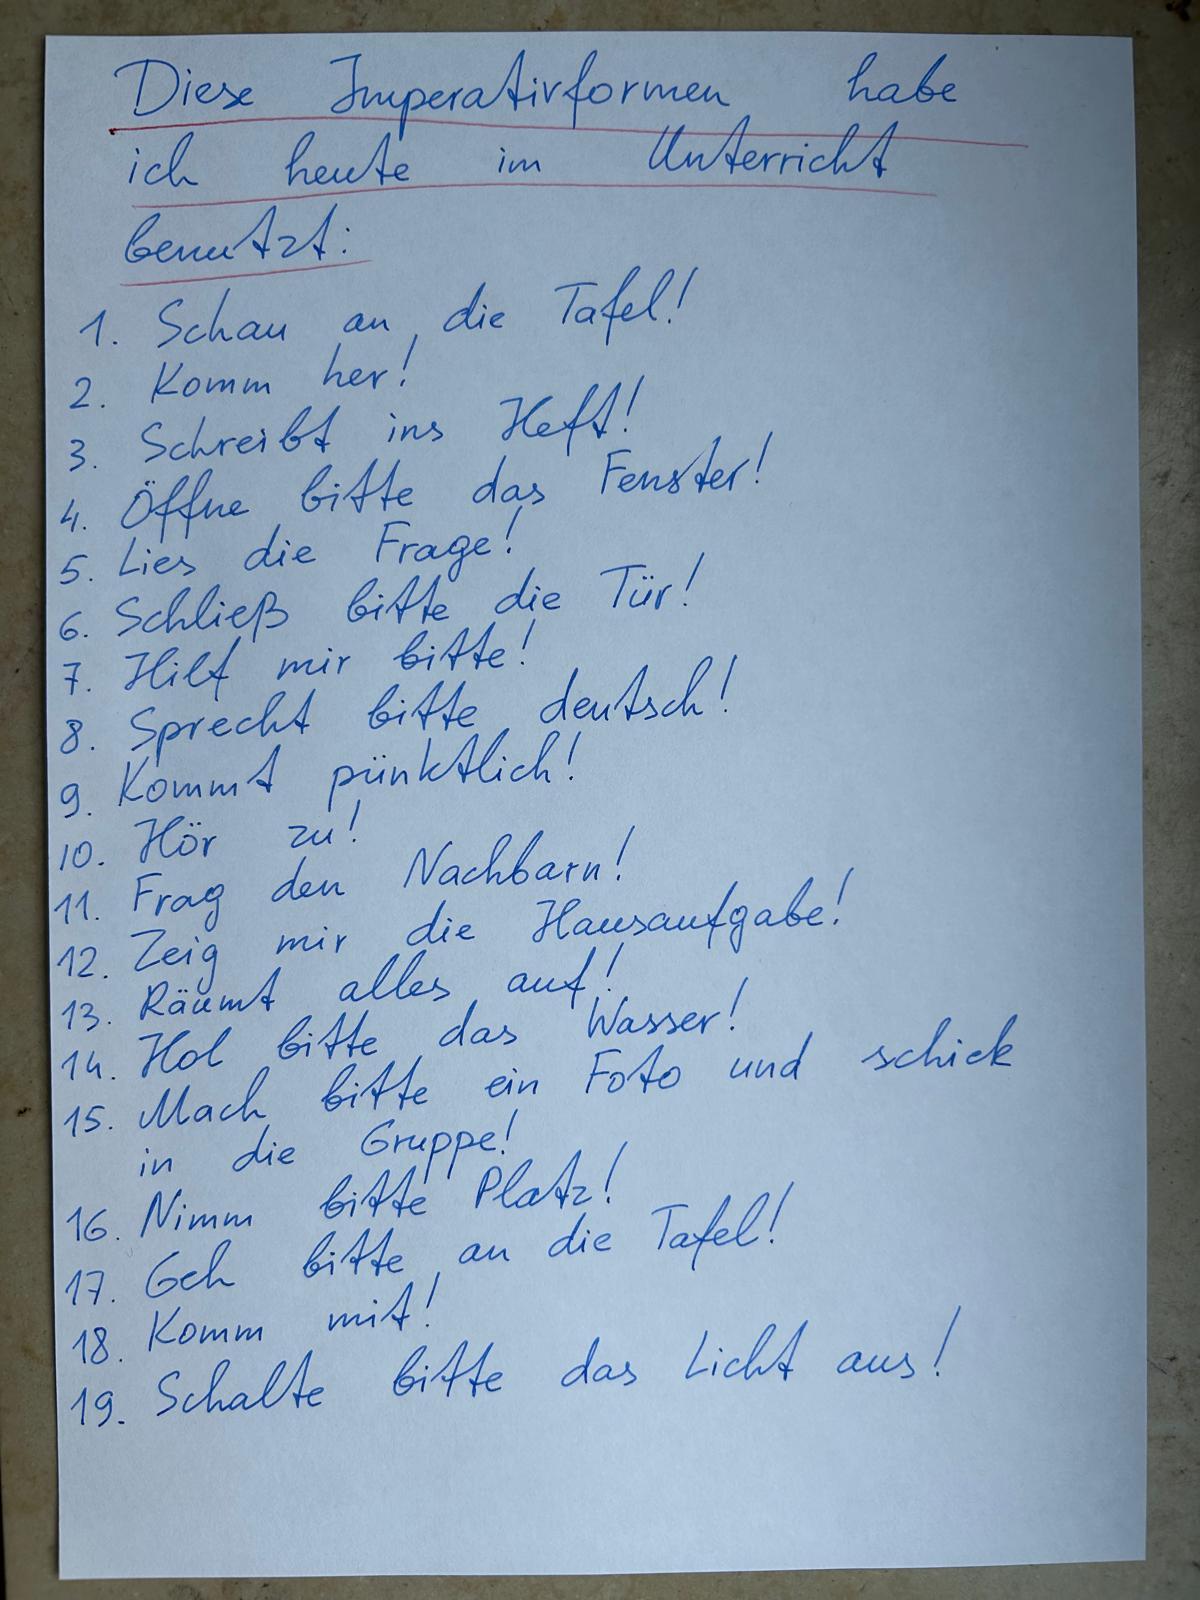 Diese Imperativformen habe
ich heute im Unterricht
benutzt:
1. Schau an die Tafel!
2. Komm her!
3. Schreibt ins Heft!
4. Öffne bitte das Fenster!
5. Lies die Frage!
6. Schließ bitte die Tür!
7. Hilf mir bitte!
8. Sprecht bitte deutsch!
9. Kommt pünktlich!
10. Hör zu!
11. Frag den Nachbarn!
12. Zeig mir die Hausaufgabe!
13. Räumt alles auf!
14. Hol bitte das Wasser!
15. Mach bitte ein Foto und schick
in die Gruppe!
16. Nimm bitte Platz!
17. Geh bitte an die Tafel!
18. Komm mit!
19. Schalte bitte das Licht aus!